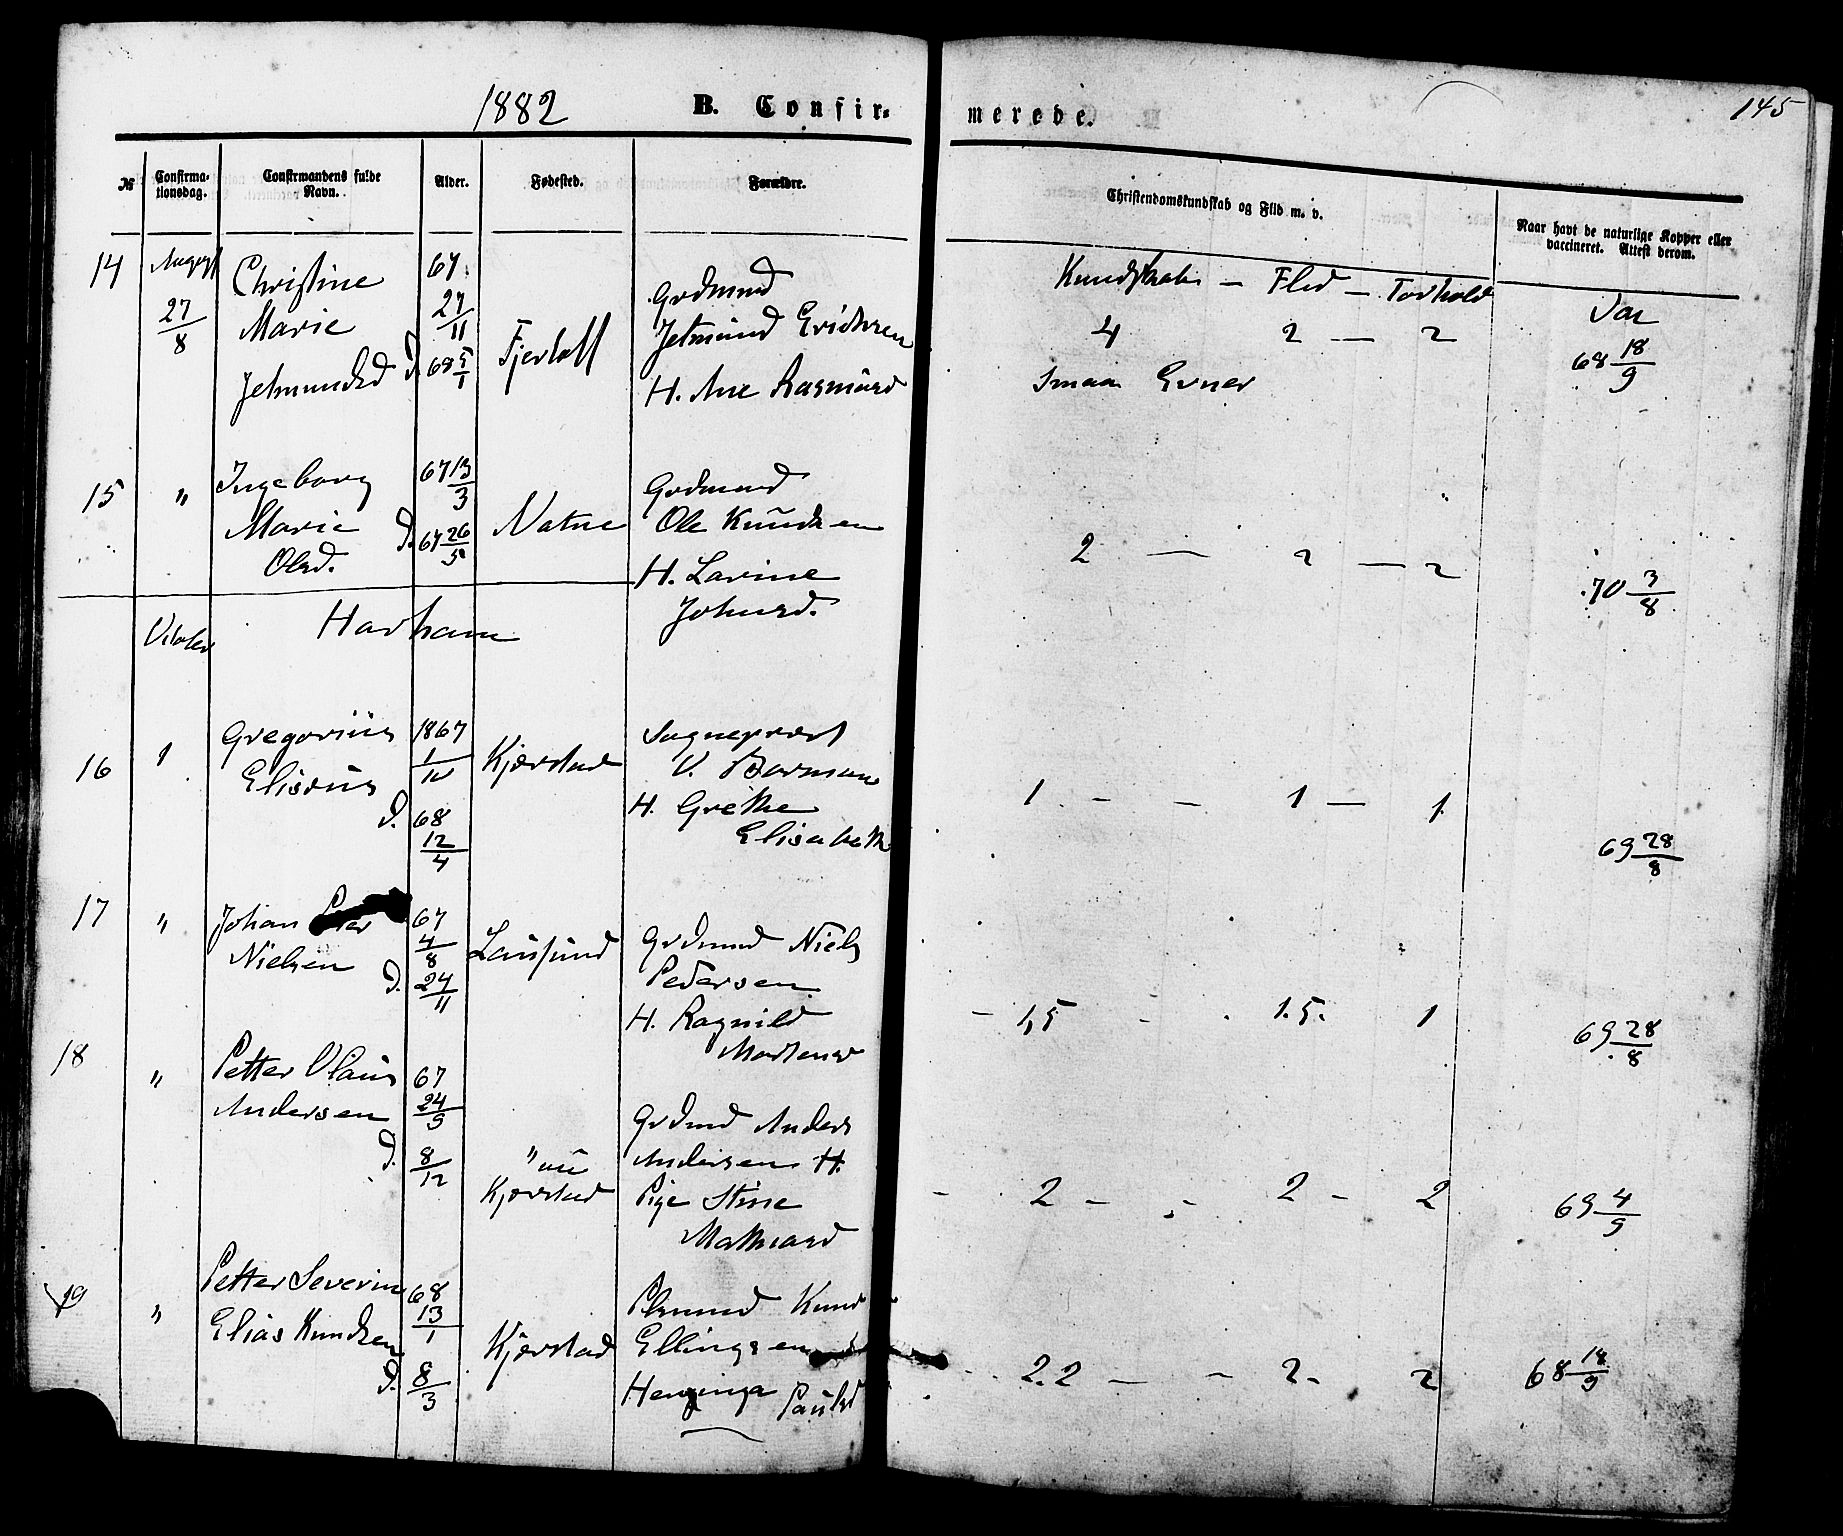 1882 B. Confir- merede. 145
№ Confirma-tionsdag. Confirmandens fulde Navn. Alder. Fødested. Forældre. Christendomskundskab og Flid m. v. Naar havt de naturlige Kopper eller vaccineret. Attest derom.
Kundskab – Flid – Forhold
14 August 27/8
Christine
Marie
Jetmundsd
67 27/11
D. 68 5/1
Fjertoft
Grdmand
Jetmund Erichsen
H. Ane Rasmusd
4 2 — 2
Smaa Evner
Vac
68 18/9
15 "
Ingeborg
Marie
Olsd.
67 13/3
D. 67 26/5
Vatne
Grdmand
Ole Knudsen
H. Lavine
Johnsd.
2 — 2 — 2
70 3/8
Harham
16
Gregorius
Elisæus
1867
1/12
D. 68
12/4
Kjærstad
Sogneprest
V. Barman
H. Grethe
Elisabeth
1 - - 1 — 1
69 28/8
17 "
Johan Peter
Nielsen
67
4/8
D. 24/11
Lausund
Grdmand Niels
Pedersen
H. Ragnild
Mortensd
- 1,5 - 1.5. 1
69 28/8
18 "
Petter Olaus
Andersen
67
24/9
D. 8/12
Kjærstad
Grdmd Anders
Andersen H.
Pige Stine
Mathiasd
- 2 - - 2 - 2
69 4/9
19 "
Petter Severin
Elias Knudsen
68
13/1
D. 8/3
Kjærstad
Plsmand Knud
Ellingsen
Paulsd
2.2 — - 2- 2
68 18/9